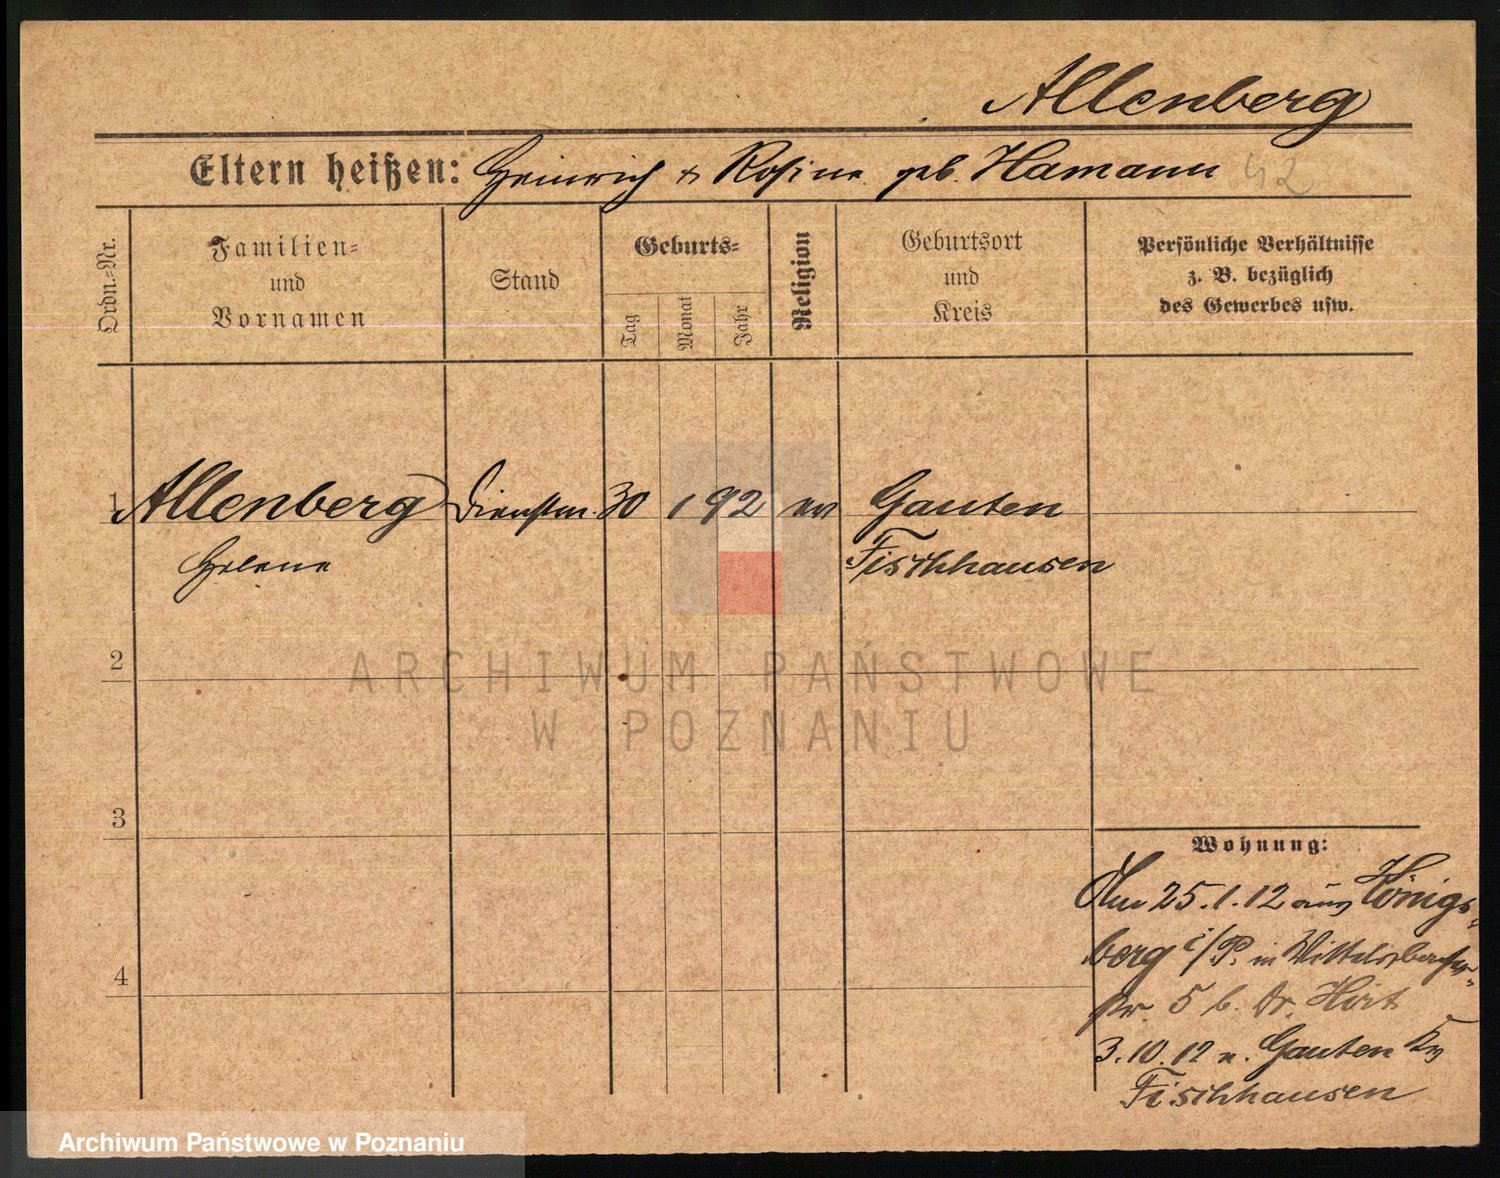 Allenberg
Eltern heißen: Heinrich & Rosine geb. Hamann 42
Ordn.-Nr.
Familien-
und
Vornamen
Stand
Geburts-
Tag
Monat
Jahr
Religion
Geburtsort
und
Kreis
Persönliche Verhältnisse
z. B. bezüglich
des Gewerbes usw.
1 Allenberg Dienstm. 30 1 92 ev Gauten
Helene Fischhausen
2
3
4
Wohnung:
Am 25.1.12 aus Königs-
berg i/P. in Wittelsbacher-
str. 5 b. Dr. Hirt
3.10.12 n. Gauten Kr
Fischhausen
ARCHIWUM PAŃSTWOWE
W POZNANIU
Archiwum Państwowe w Poznaniu